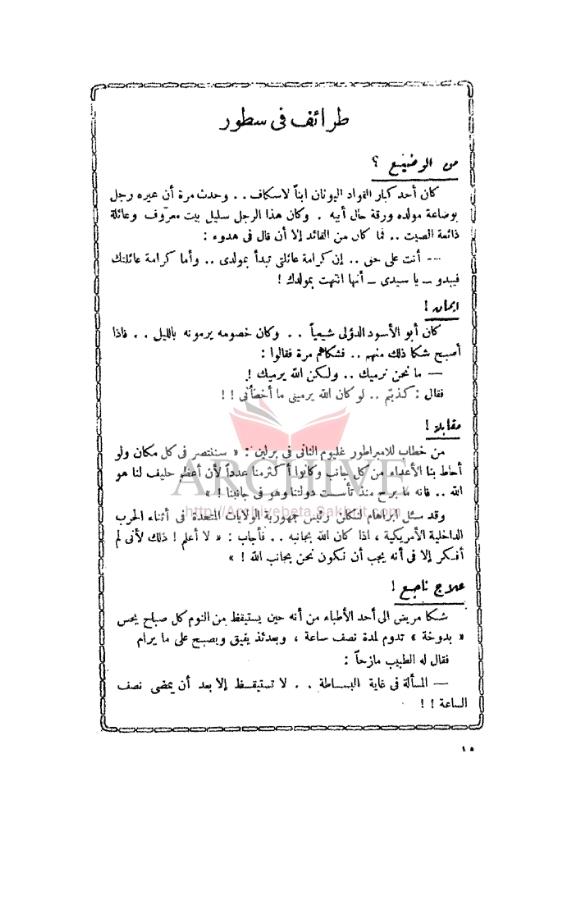 طرائف فى سطور
من الوضيع ؟
كان أحد كبار القواد اليونان ابناً لاسكاف . . وحدث مرة أن عيره رجل
بوضاعة مولده ورقة حال أبيه . وكان هذا الرجل سليل بيت معروف وعائلة
ذائعة الصيت . . فما كان من القائد إلا أن قال فى هدوء :
— أنت على حق . . إن كرامة عائلتى تبدأ بمولدى . . وأما كرامة عائلتك
فيبدو — يا سيدى — أنها انتهت بمولدك !
ايمان !
كان أبو الأسود الدؤلى شيعياً . . وكان خصومه يرمونه بالليل . . فاذا
أصبح شكا ذلك منهم . . فشكاهم مرة فقالوا :
— ما نحن نرميك . . ولكن الله يرميك !
فقال : كذبتم . . لو كان الله يرمينى ما أخطأنى ! !
مقابلة !
من خطاب للامبراطور غليوم الثانى فى برلين : « سننتصر فى كل مكان ولو
أحاط بنا الأعداء من كل جانب وكانوا أكثر منا عدداً لأن أعظم حليف لنا هو
الله . . فانه ما برح منذ تأسست دولتنا وهو فى جانبنا ! »
وقد سئل ابراهام لنكلن رئيس جمهورية الولايات المتحدة فى أثناء الحرب
الداخلية الأمريكية ، اذا كان الله بجانبه . . فأجاب : « لا أعلم ! ذلك لأنى لم
أفكر إلا فى أنه يجب أن نكون نحن بجانب الله ! »
علاج ناجع !
شكا مريض الى أحد الأطباء من أنه حين يستيقظ من النوم كل صباح يحس
« بدوخة » تدوم لمدة نصف ساعة ، وبعدئذ يفيق ويصبح على ما يرام
فقال له الطبيب مازحاً :
— المسألة فى غاية البساطة . . لا تستيقظ إلا بعد أن يمضى نصف
الساعة ! !
١٥
ARCHIVE
http://Archivebeta.Sakhrit.com